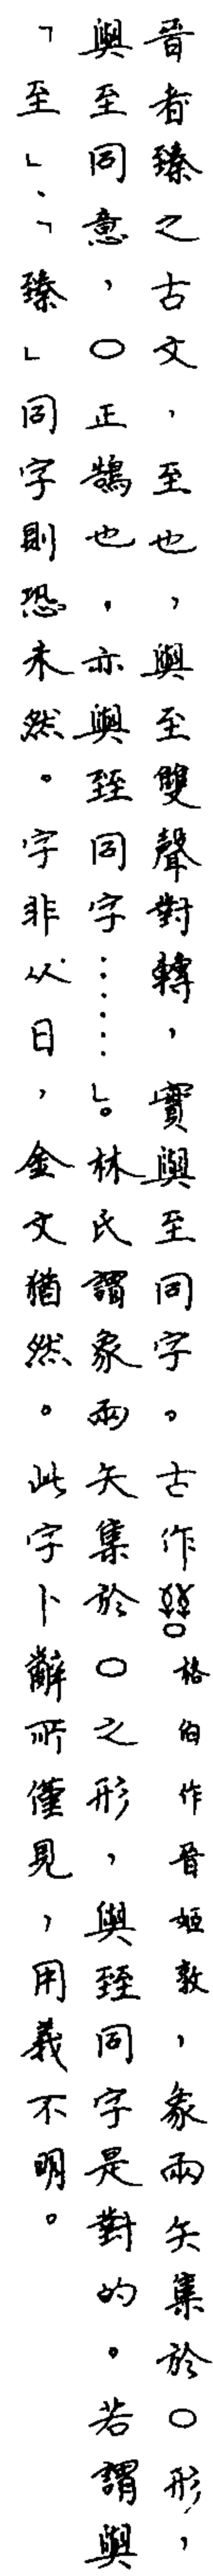 晉者臻之古文，至也，與至雙聲對轉，實與至同字。古作○格伯作晉姬敦，象兩矢集於○形，
與至同意，○正鵠也，亦與臸同字……」。林氏謂象兩矢集於○之形，與臸同字是對的。若謂與
「至」、「臻」同字則恐未然。字非从日，金文猶然。此字卜辭所僅見，用義不明。